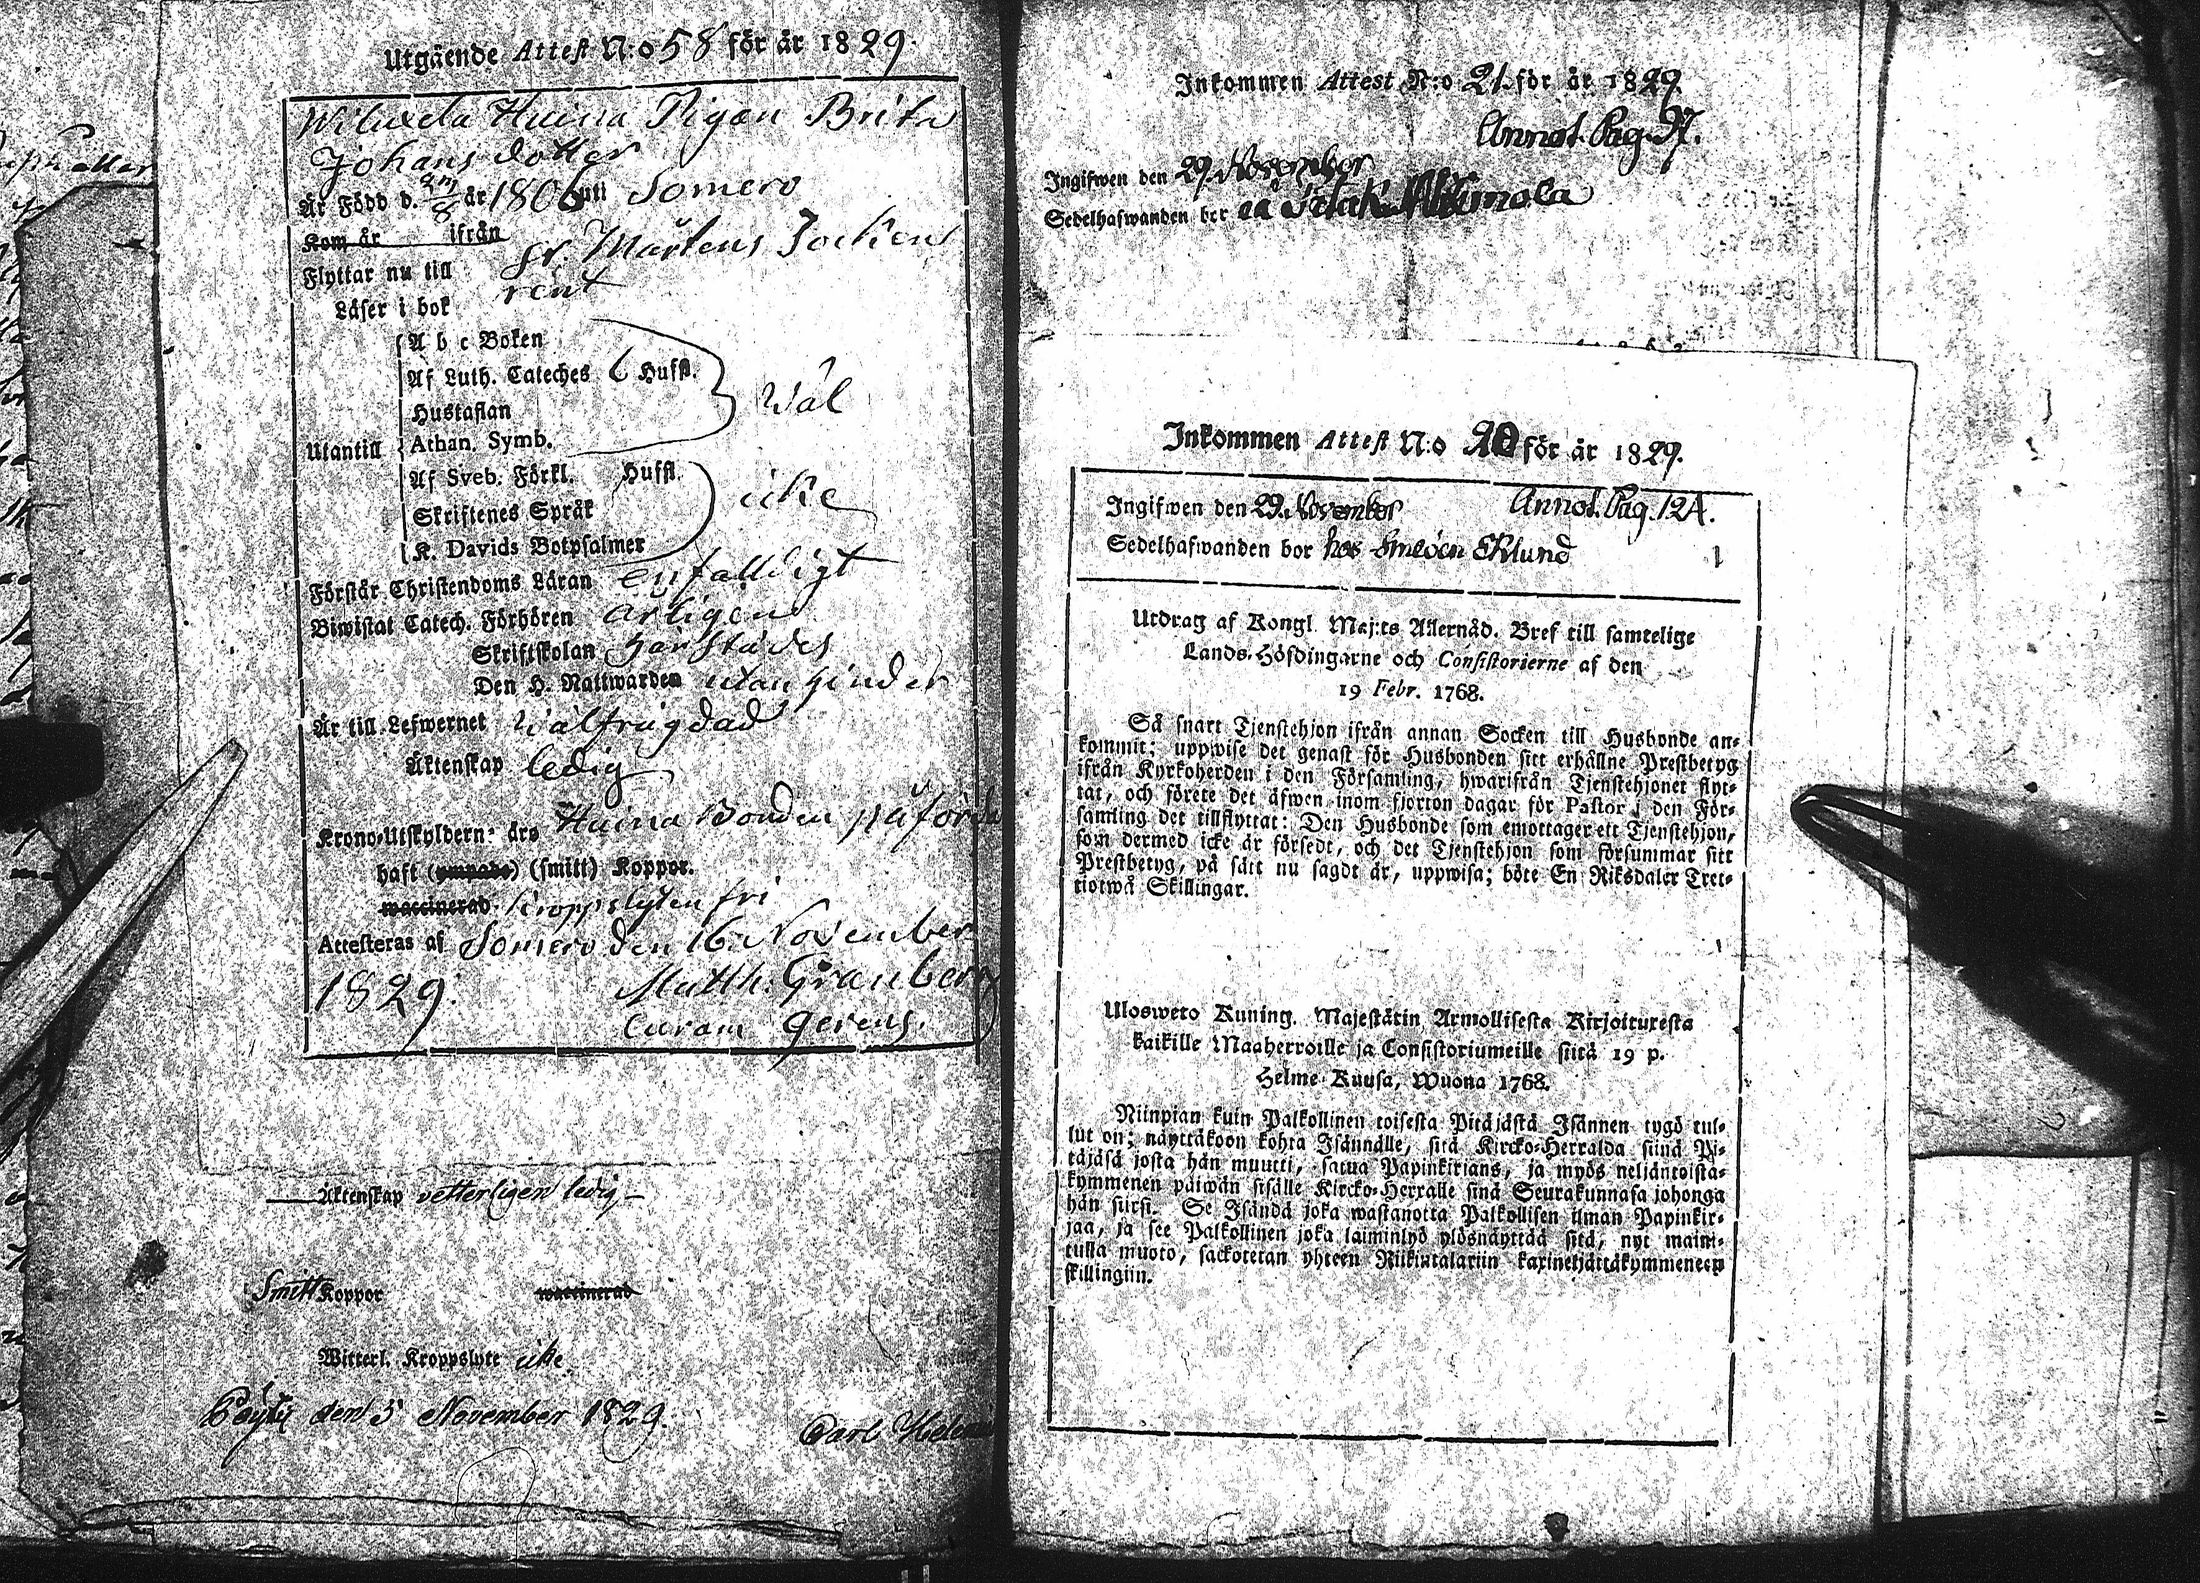 Utgående Attest N:o 58 för år 1829.
Huina Pigan Brita
Johans dotter
År Född d. år 1806 uti Somero
Kom år ifrån
Flyttar nu till St. Mårtens Socken
Läser i bok rent
A b c Boken
Af Luth. Cateches 6 Huffl.
Hustaflan
wäl
Utantill Athan. Symb.
Af Sveb. Förkl. Huffl.
Skriftenes Språk
icke
K. Davids Botpsalmer
Förstår Christendoms Läran enfaldigt
Biwistat Catech. Förhören årligen
Skriftskolan härstädes
Den H. Nattwarden utan hinder
Är till Lefwernet wälfrägdad
Äktenskap ledig
Krono-Utskyldern: äro Huina Bonden påförda
haft (ympade) (smitt) Koppor.
waccinerad. Kroppslyten fri
Attesteras af Somero den 16 November
1829. Matth. Granberg
Curam gerens.
Äktenskap vetterligen ledig
Smitt Koppor waccinerad
Witterl. Kroppslyte icke
Pöytis den 5 November 1829.
Carl
Inkommen Attest N:o 21. för år 1829.
Annot. Pag. 97.
Ingifwen den 29. November
Sedelhafwanden bor
Inkommen Attest N:o 20 för år 1829.
Ingifwen den 29. November Annot. Pag. 124.
Sedelhafwanden bor hos Smeden Eklund
Utdrag af Kongl. Maj:ts Allernåd. Bref till samtelige
Lands-Höfdingarne och Consistorierne af den
19 Febr. 1768.
Så snart Tjenstehjon ifrån annan Socken till Husbonde an-
kommit; uppwise det genast för Husbonden sitt erhållne Prestbetyg
ifrån Kyrkoherden i den Församling, hwarifrån Tjenstehjonet flyt-
tat, och förete det äfwen inom fjorton dagar för Pastor i den För-
samling det tillflyttat: Den Husbonde som emottager ett Tjenstehjon,
som dermed icke är försedt, och det Tjenstehjon som försummar sitt
Prestbetyg, på sätt nu sagdt är, uppwisa; böte En Riksdaler Tret-
tiotwå Skillingar.
Ulosweto Kuning. Majestätin Armollisesta Kirjoituresta
kaikille Maaherroille ja Consistoriumeille siitä 19 p.
Helme-Kuusa, Wuona 1768.
Niinpian kuin Palkollinen toisesta Pitäjästä Isännen tygö tul-
lut on; näyttäkoon kohta Isännälle, sitä Kircko-Herralda siinä Pi-
täjäsä josta hän muutti, satua Papinkirjans, ja myös neljäntoista-
kymmenen päiwän sisälle Kircko-Herralle siinä Seurakunnasa johonga
hän siirsi. Se Isändä joka wastanotta Palkollisen ilman Papinkir-
jaa, ja see Palkollinen joka laiminlyö ylösnäyttää sitä, nyt maini-
tulla muoto, sackotetan yhteen Riikintalariin karinetjättäkymmeneen
skillingiin.